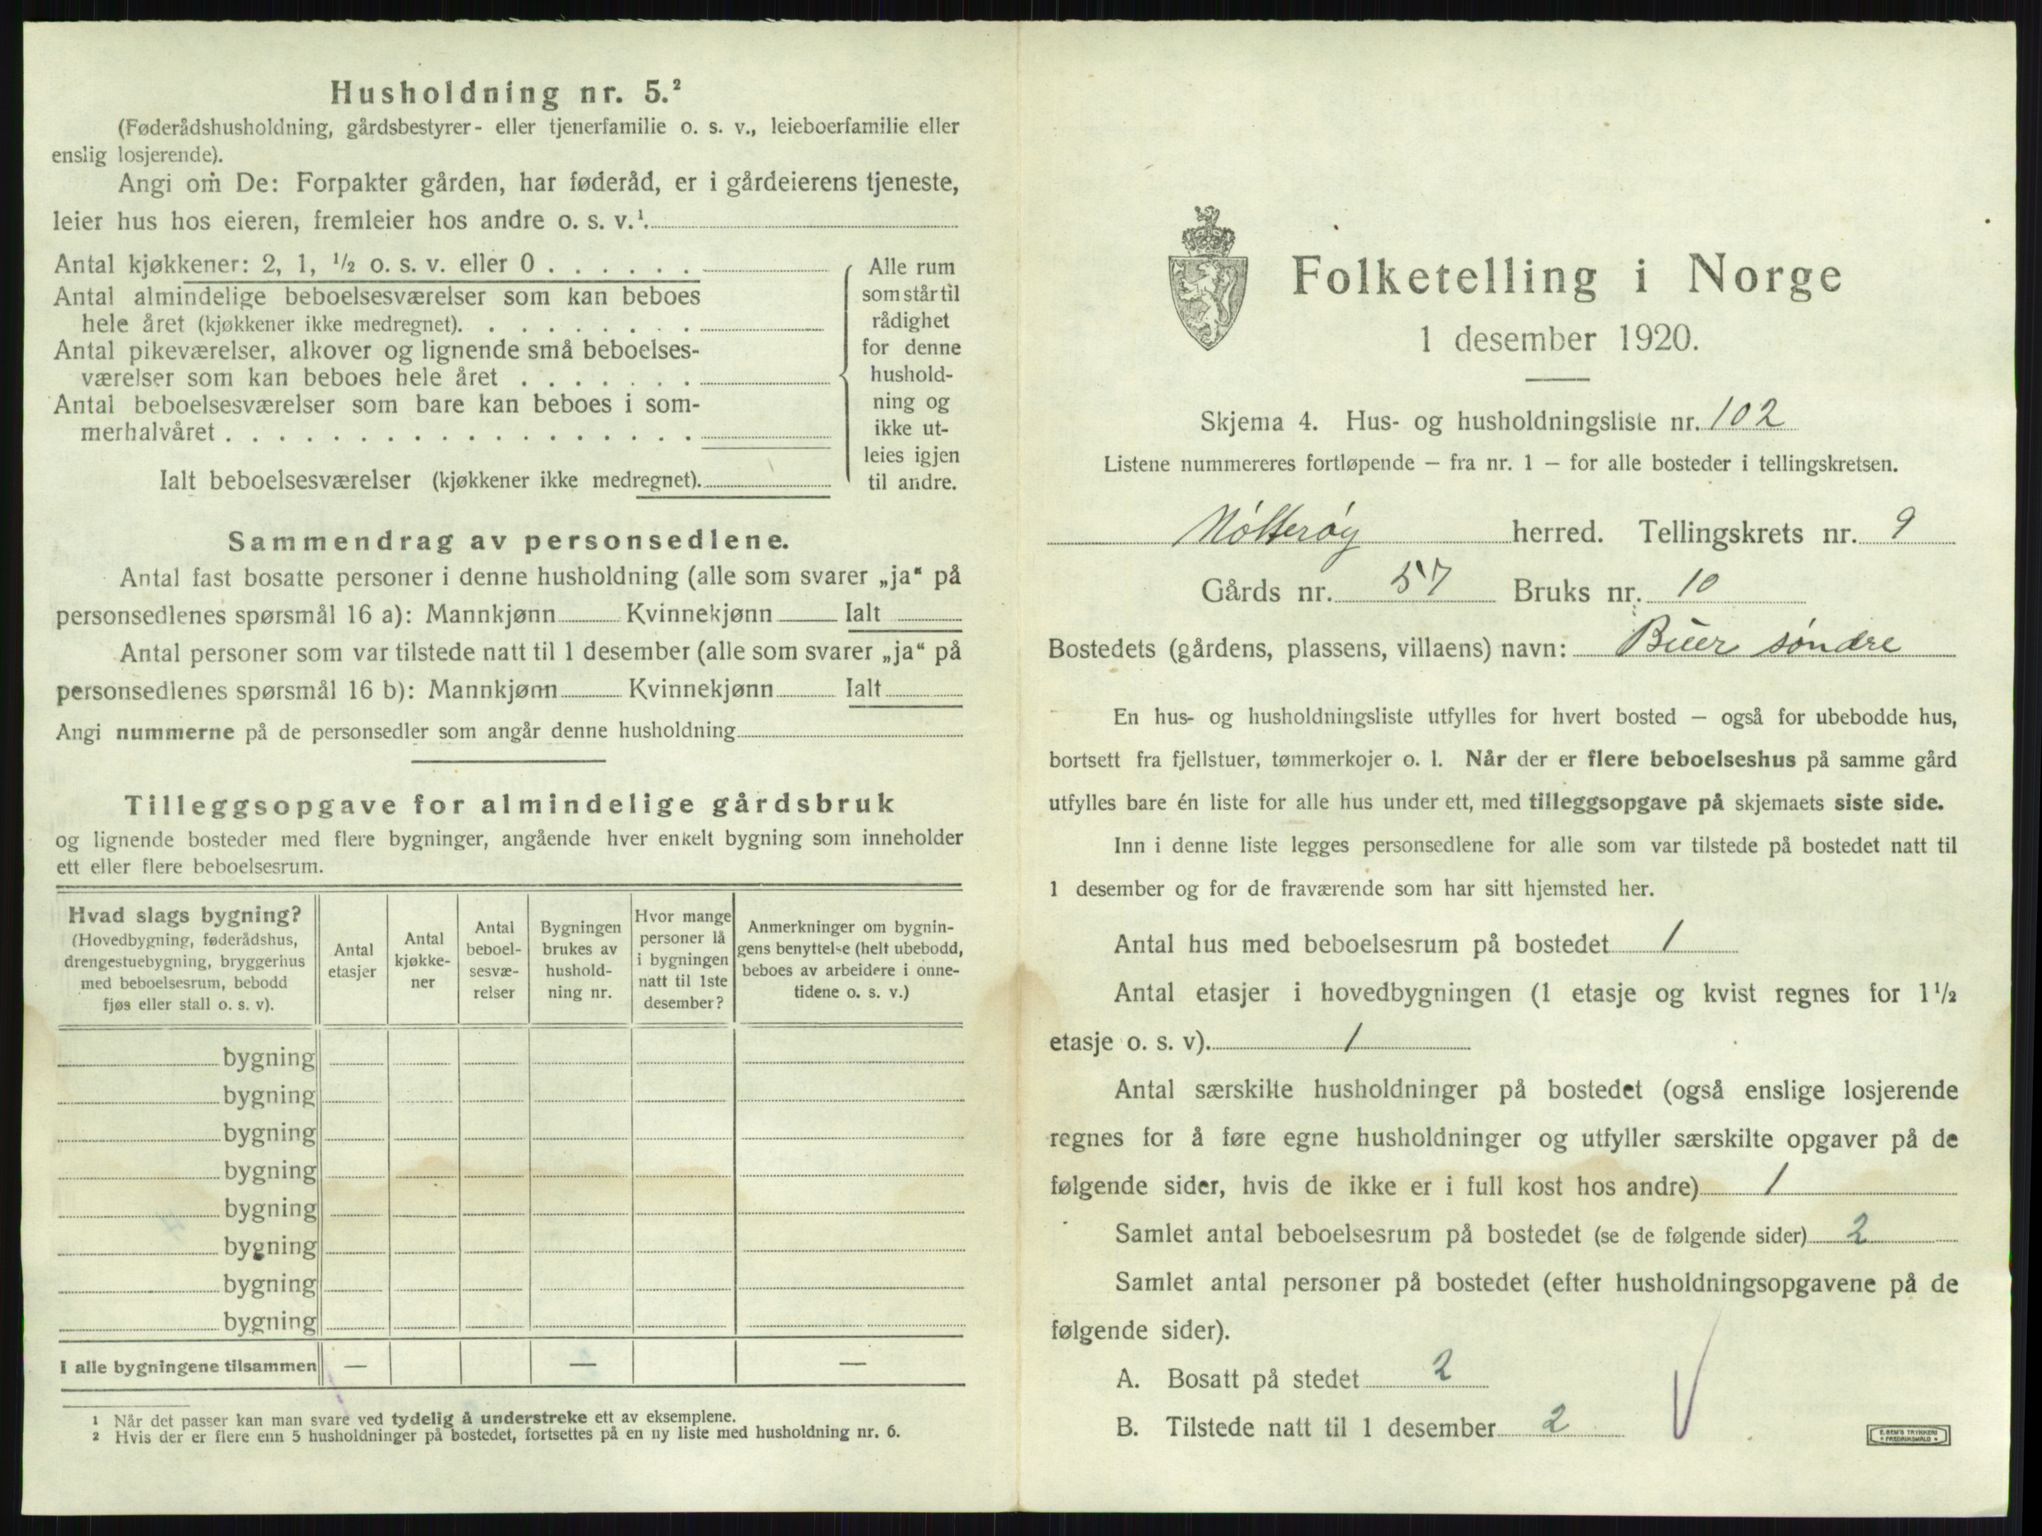 Husholdning nr. 5.²
(Føderådshusholdning, gårdsbestyrer- eller tjenerfamilie o. s. v., leieboerfamilie eller
enslig losjerende).
Angi om De: Forpakter gården, har føderåd, er i gårdeierens tjeneste,
leier hus hos eieren, fremleier hos andre o. s. v.¹.
Antal kjøkkener: 2, 1, ½ o. s. v. eller 0 . . . . . .
Antal almindelige beboelsesværelser som kan beboes
hele året (kjøkkener ikke medregnet). . . . . . . . .
Antal pikeværelser, alkover og lignende små beboelses-
værelser som kan beboes hele året . . . . . . .
Antal beboelsesværelser som bare kan beboes i som-
merhalvåret . . . . . . . . . . . . . . . . . .
Ialt beboelsesværelser (kjøkkener ikke medregnet).
Alle rum
som står til
rådighet
for denne
hushold-
ning og
ikke ut-
leies igjen
til andre.
Sammendrag av personsedlene.
Antal fast bosatte personer i denne husholdning (alle som svarer „ja“ på
personsedlenes spørsmål 16 a): Mannkjønn Kvinnekjønn Ialt
Antal personer som var tilstede natt til 1 desember (alle som svarer „ja“ på
personsedlenes spørsmål 16 b): Mannkjønn Kvinnekjønn Ialt
Angi nummerne på de personsedler som angår denne husholdning
Tilleggsopgave for almindelige gårdsbruk
og lignende bosteder med flere bygninger, angående hver enkelt bygning som inneholder
ett eller flere beboelsesrum.
Hvad slags bygning?
(Hovedbygning, føderådshus,
drengestuebygning, bryggerhus
med beboelsesrum, bebodd
fjøs eller stall o. s. v).
Antal
etasjer
Antal
kjøkke-
ner
Antal
beboel-
sesvæ-
relser
Bygningen
brukes av
hushold-
ning nr.
Hvor mange
personer lå
i bygningen
natt til 1ste
desember?
Anmerkninger om bygnin-
gens benyttelse (helt ubebodd,
beboes av arbeidere i onne-
tidene o. s. v.)
bygning
bygning
bygning
bygning
bygning
bygning
bygning
bygning
I alle bygningene tilsammen — — —
¹ Når det passer kan man svare ved tydelig å understreke ett av eksemplene.
² Hvis der er flere enn 5 husholdninger på bostedet, fortsettes på en ny liste med husholdning nr. 6.
Folketelling i Norge
1 desember 1920.
Skjema 4. Hus- og husholdningsliste nr. 102
Listene nummereres fortløpende – fra nr. 1 – for alle bosteder i tellingskretsen.
Nøtterøy herred. Tellingskrets nr. 9
Gårds nr. 57 Bruks nr. 10
Bostedets (gårdens, plassens, villaens) navn: Buer søndre
En hus- og husholdningsliste utfylles for hvert bosted – også for ubebodde hus,
bortsett fra fjellstuer, tømmerkojer o. l. Når der er flere beboelseshus på samme gård
utfylles bare én liste for alle hus under ett, med tilleggsopgave på skjemaets siste side.
Inn i denne liste legges personsedlene for alle som var tilstede på bostedet natt til
1 desember og for de fraværende som har sitt hjemsted her.
Antal hus med beboelsesrum på bostedet 1
Antal etasjer i hovedbygningen (1 etasje og kvist regnes for 1½
etasje o. s. v). 1
Antal særskilte husholdninger på bostedet (også enslige losjerende
regnes for å føre egne husholdninger og utfyller særskilte opgaver på de
følgende sider, hvis de ikke er i full kost hos andre) 1
Samlet antal beboelsesrum på bostedet (se de følgende sider) 2
Samlet antal personer på bostedet (efter husholdningsopgavene på de
følgende sider).
A. Bosatt på stedet 2
B. Tilstede natt til 1 desember 2